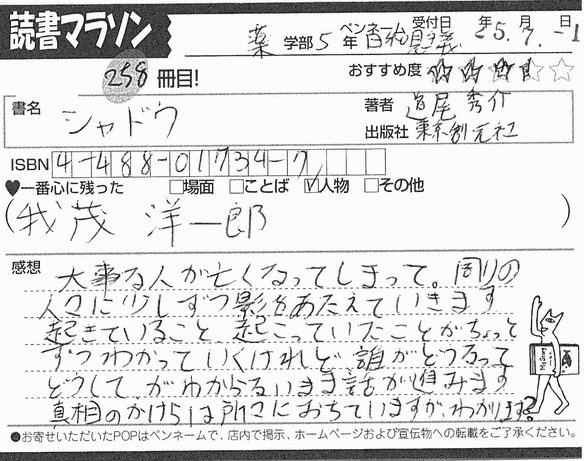 読書マラソン
薬 学部 5 年 ペンネーム 自治 受付日 25年 7. -1日
258 冊目!
おすすめ度 ☆☆☆☆☆
書名 シャドウ
著者 道尾 秀介
出版社 東京創元社
ISBN 4-488-01734-7
♥一番心に残った □場面 □ことば ☑人物 □その他
(我茂 洋一郎)
感想
大事な人が亡くなってしまって。周りの
人々に少しずつ影をあたえていきます
起きていること、起こっていたことがちょっと
ずつわかっていくけれど 誰がどうなって
どうして がわからないまま話が進みます
真相のかけらは所々におちていますが、わかります?
●お寄せいただいたPOPはペンネームで、店内で掲示、ホームページおよび宣伝物への転載をご了承ください。